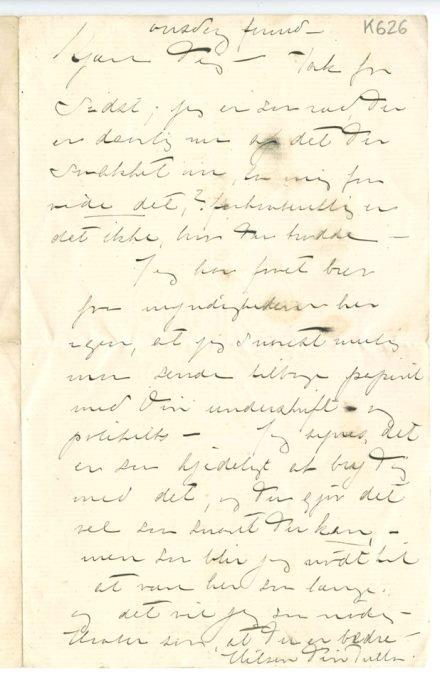 onsdag formd – K626
Kjære Dig – Tak for
Sidst; jeg er så ræd, Du
er dårlig nu og det Du
snakket om, lov mig få
vide det,?
det ikke, hvis Du hadde –
Jeg har fået brev
fra myndighederne her
igjen, at jeg snarest mulig
må sende tilbage papiret
med Din underskrift – og
politiets – Jeg synes, det
er så kjedeligt at bry Dig
med det, og Du gjør det
vel så snart Du kan, –
men så blir jeg nødt til
at være her så længe.
og det vil jeg så nødig –
så, at Du er bedre –
Hilsen Din Tulla.